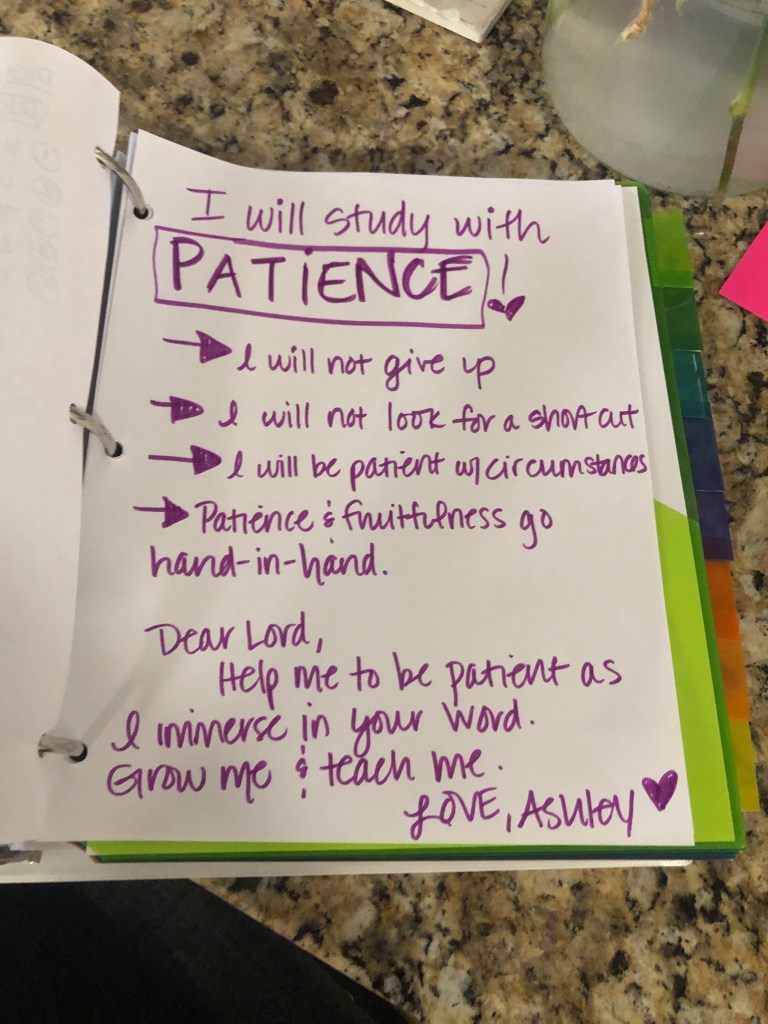 I will study with
PATIENCE!
I will not give up
I will not look for a shortcut
I will be patient w/circumstances
Patience & fruitfulness go
hand-in-hand.
Dear Lord,
Help me to be patient as
I immerse in your Word.
Grow me & teach me.
LOVE, Ashley